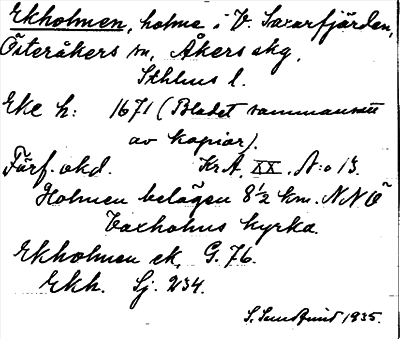 Ekholmen, holme i V. Saxarfjärden,
Österåkers sn, Åkers skg,
Sthlms l.
Eke h: 1671 (Bladet sammansatt
av kopior).
Förf. okd. KrA, XX, N:o 13.
Holmen belägen 8 1/2 km. NNÖ
Vaxholms kyrka.
Ekholmen ek. G. 76.
Ekh. Sj. 234.
S. Sundquist 1935.